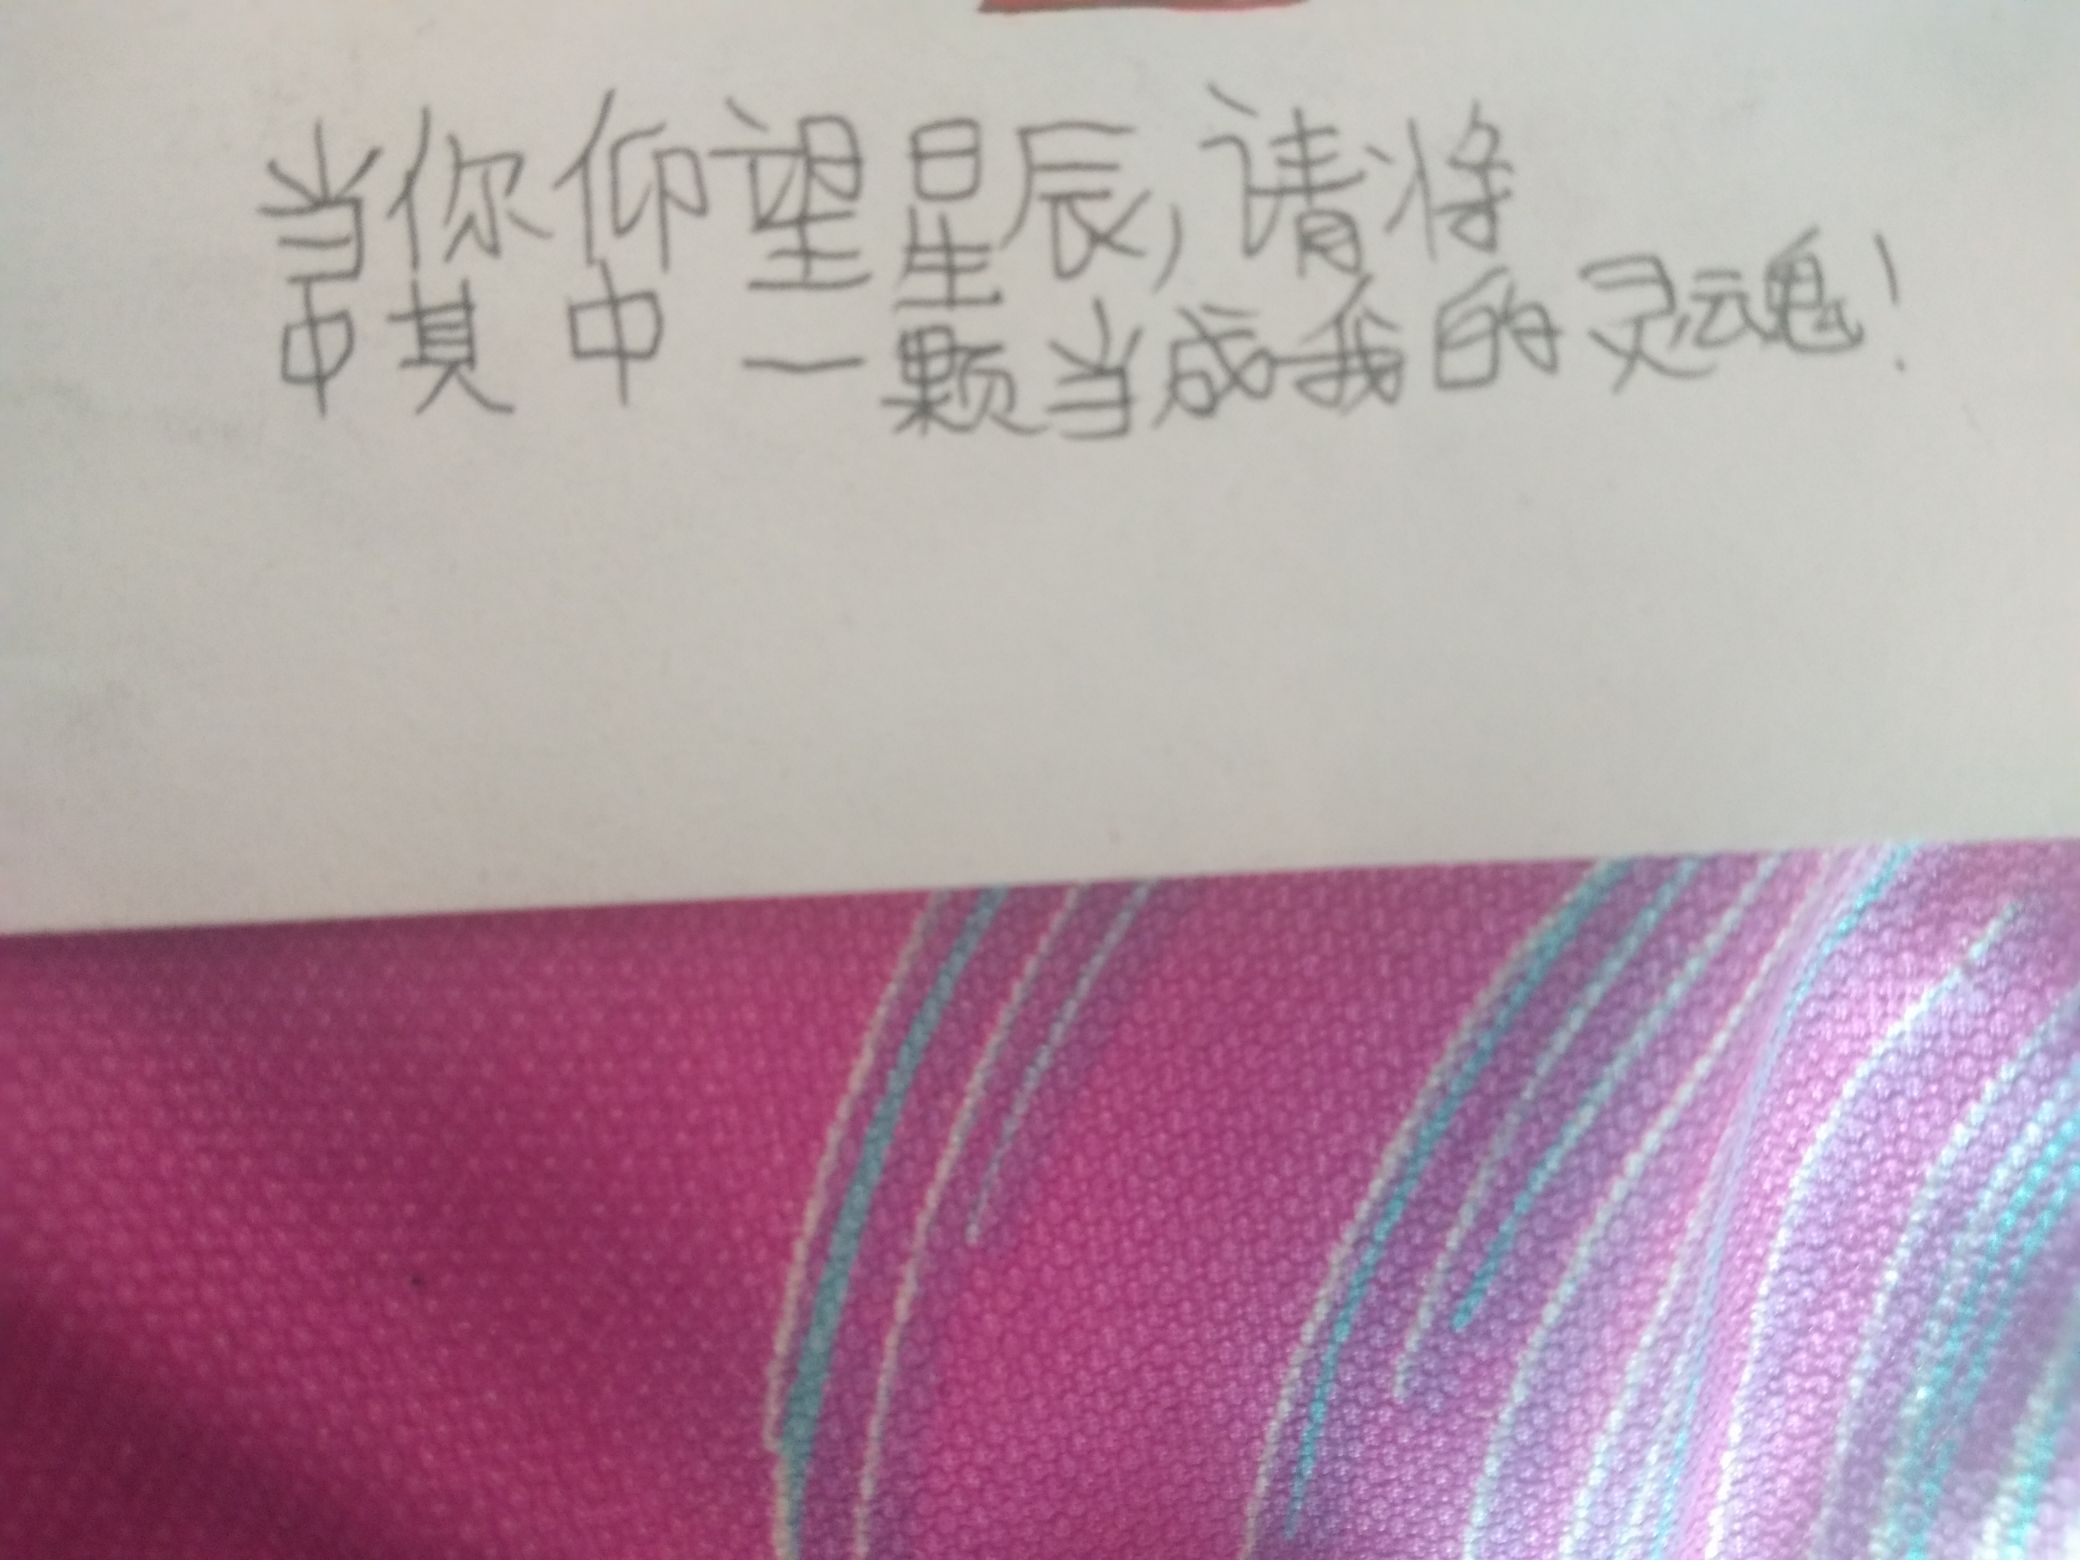 当你仰望星辰,请将
中其中一颗当成我的灵魂!